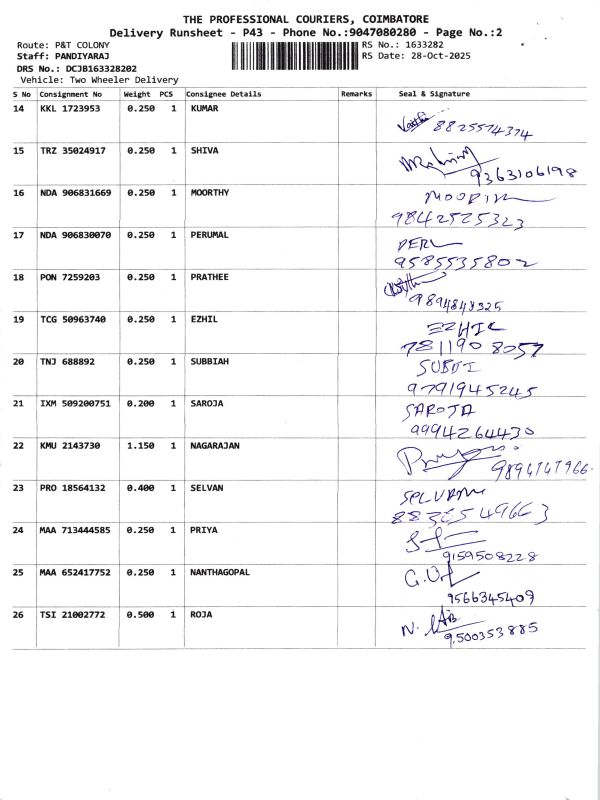 THE PROFESSIONAL COURIERS, COIMBATORE
Delivery Runsheet - P43 - Phone No.:9047080280 - Page No.:2
Route: P&T COLONY RS No.: 1633282
Staff: PANDIYARAJ RS Date: 28-Oct-2025
DRS No.: DCJB163328202
Vehicle: Two Wheeler Delivery
S No Consignment No Weight PCS Consignee Details Remarks Seal & Signature
14 KKL 1723953 0.250 1 KUMAR
8825574374
15 TRZ 35024917 0.250 1 SHIVA
9363106198
16 NDA 906831669 0.250 1 MOORTHY
9842525323
17 NDA 906830070 0.250 1 PERUMAL
9585535802
18 PON 7259203 0.250 1 PRATHEE
9894848325
19 TCG 50963740 0.250 1 EZHIL
EZHIL
7811908057
20 TNJ 688892 0.250 1 SUBBIAH
9791945245
21 IXM 509200751 0.200 1 SAROJA
SAROJA
9994264430
22 KMU 2143730 1.150 1 NAGARAJAN
23 PRO 18564132 0.400 1 SELVAN
24 MAA 713444585 0.250 1 PRIYA
9159508228
25 MAA 652417752 0.250 1 NANTHAGOPAL
9566345409
26 TSI 21002772 0.500 1 ROJA
9500353885